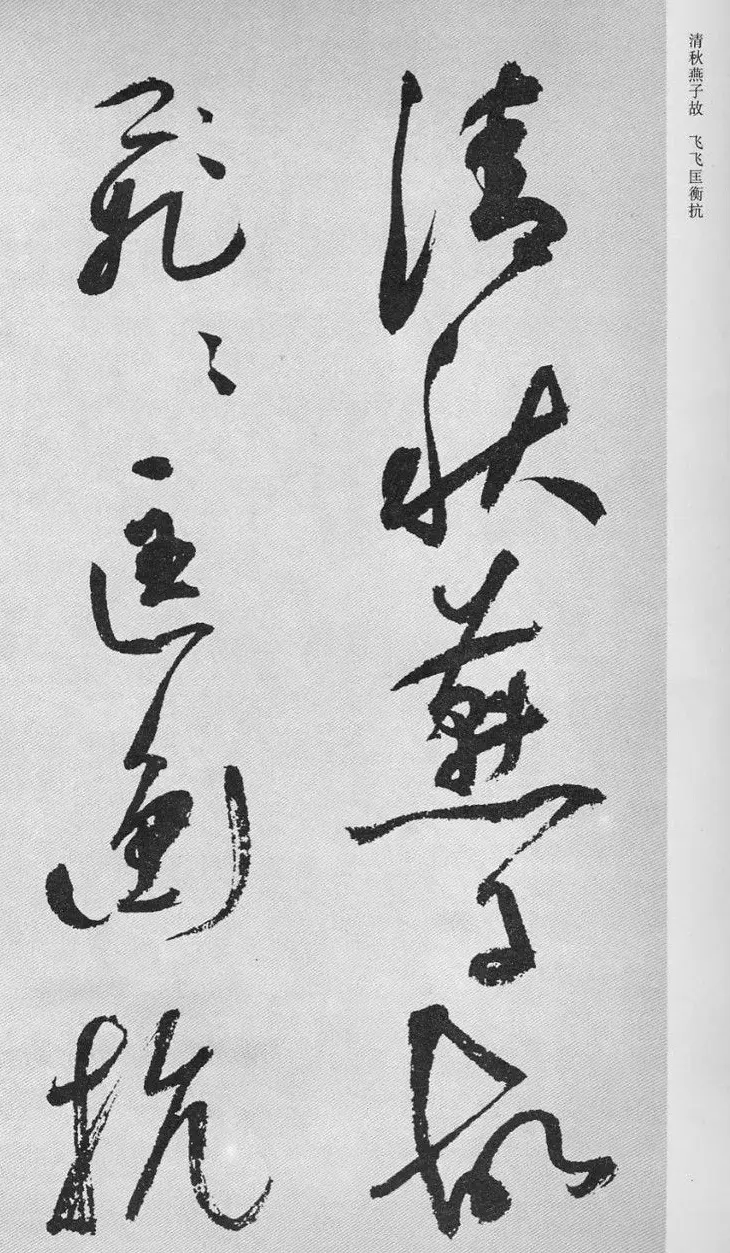 清秋燕子故 飞飞匡衡抗
清秋燕子故
飛〻匡衡抗